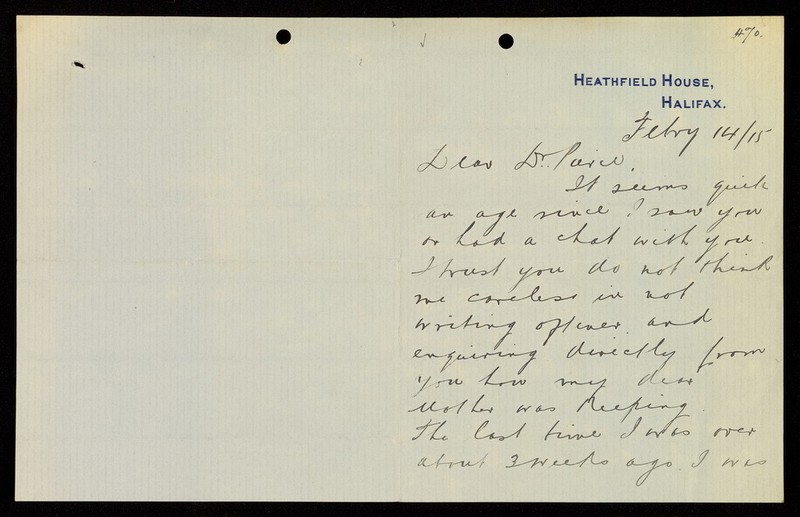 470.
HEATHFIELD HOUSE,
HALIFAX.
Febry 14/15
Dear Dr. Pierce,
It seems quite
an age since I saw you
or had a chat with you.
I trust you do not think
me careless in not
writing oftener and
enquiring directly from
you how my dear
Mother was keeping.
The last time I was over
about 3 weeks ago I was